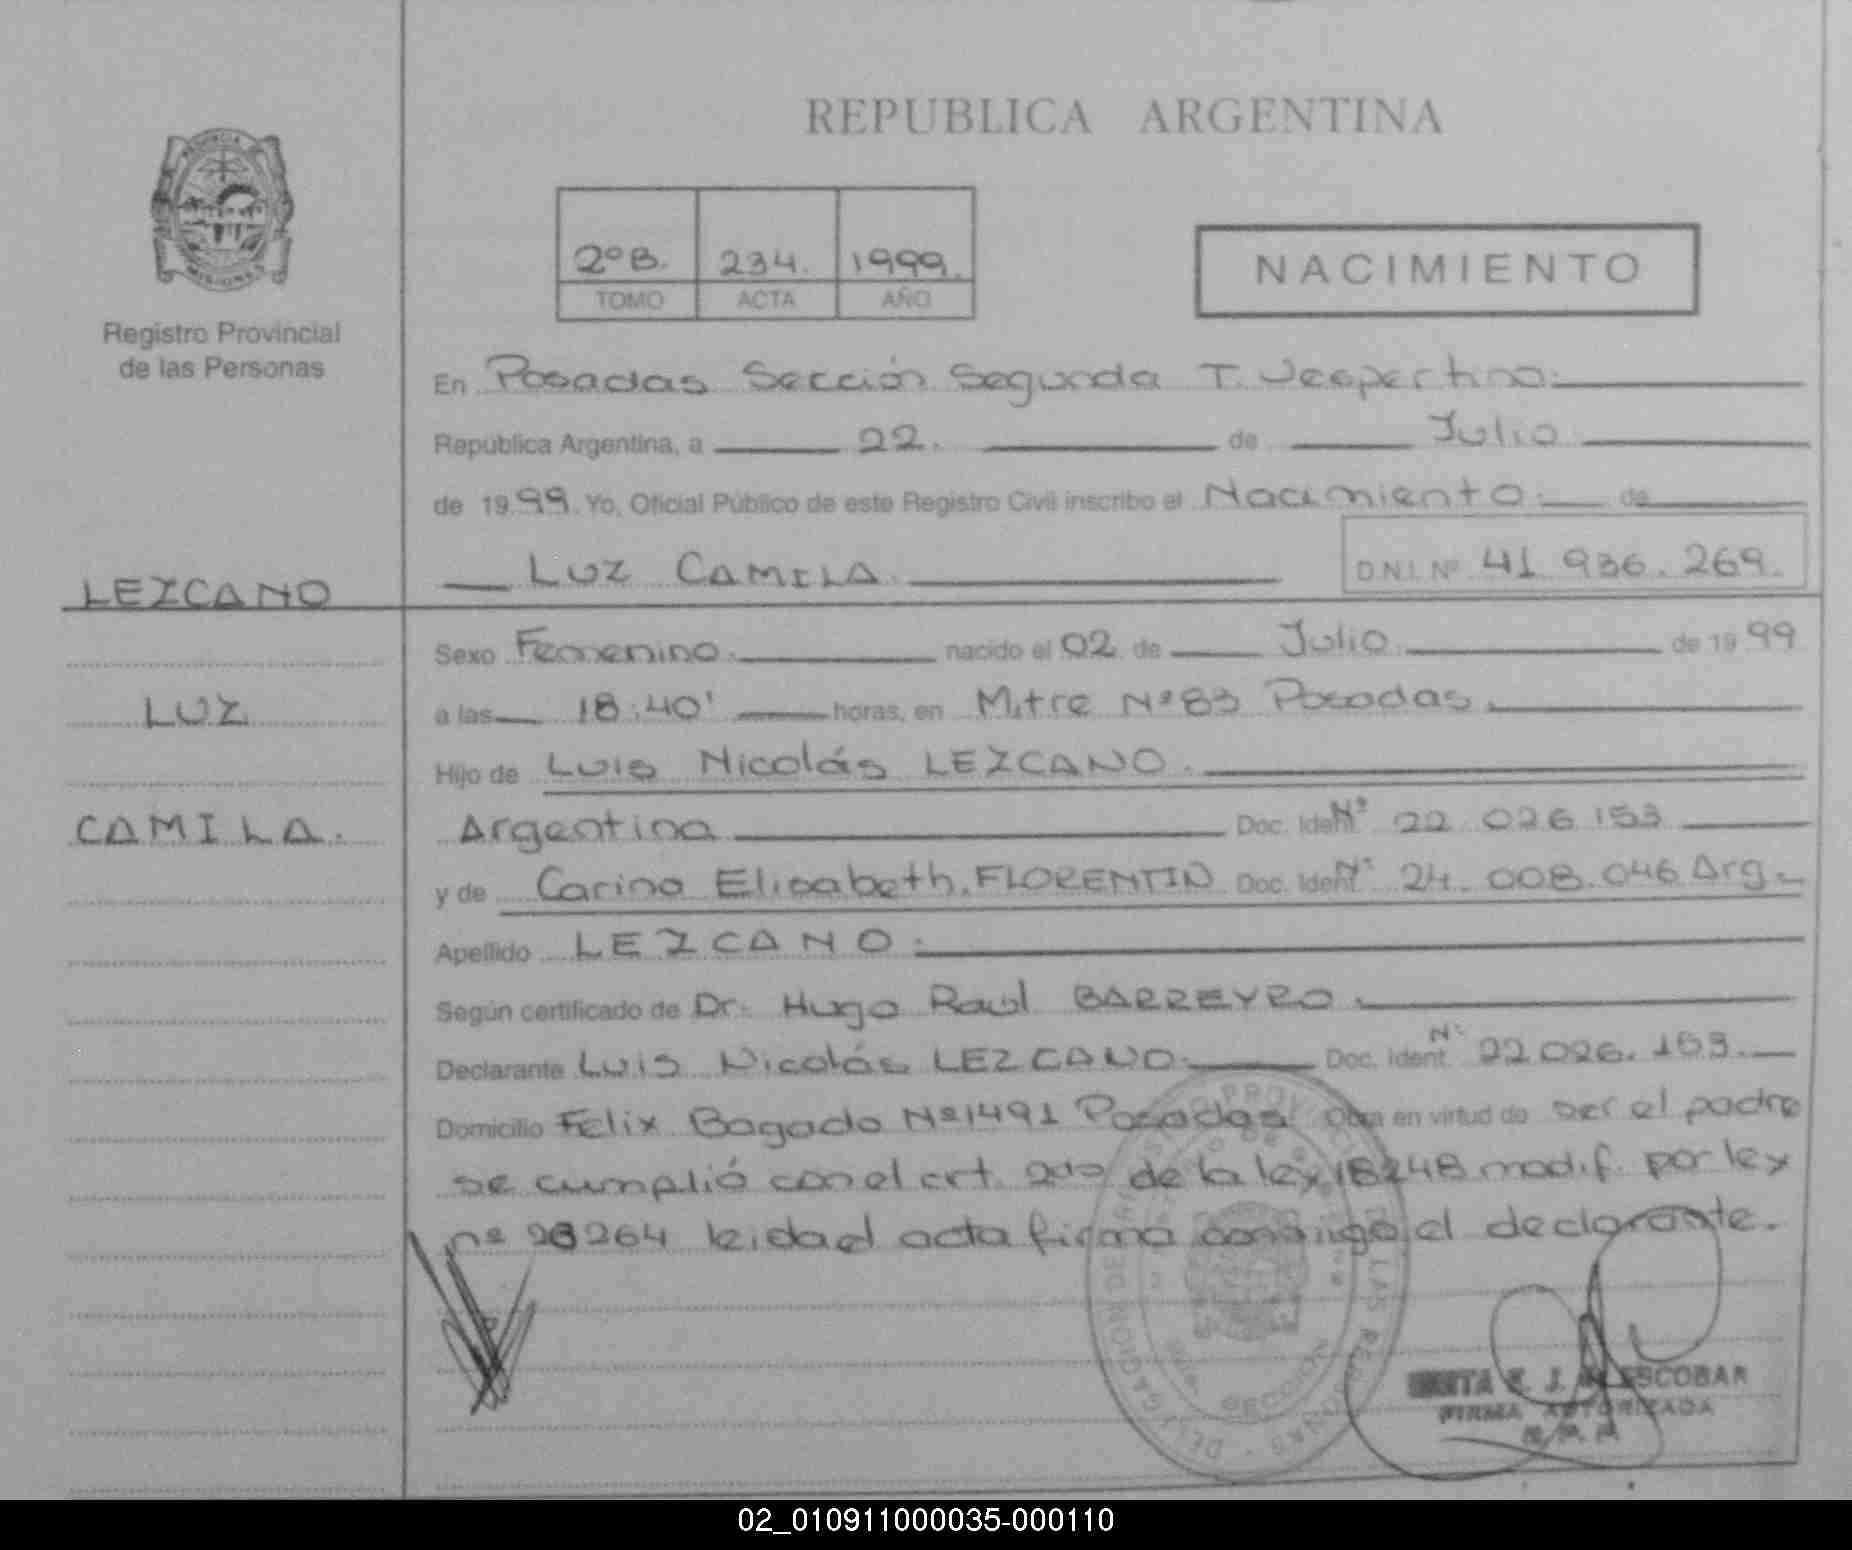 REPUBLICA ARGENTINA
2º B. 234. 1999.
TOMO ACTA AÑO
NACIMIENTO
Registro Provincial
de las Personas
En Posadas Sección Segunda T. Vespertino.
República Argentina, a 22. de Julio
de 1999. Yo, Oficial Público de este Registro Civil inscribo el Nacimiento. de
LUZ CAMILA. D.N.I. Nº 41 936. 269.
LEZCANO
LUZ
CAMILA.
Sexo Femenino. nacido el 02 de Julio. de 1999
a las 18:40' horas, en Mitre Nº 83 Posadas.
Hijo de Luis Nicolás LEZCANO.
Argentina Doc. Ident. Nº 22 026 153
y de Carina Elisabeth. FLORENTIN Doc. Ident. Nº 24. 008. 046 Arg.
Apellido LEZCANO.
Según certificado de Dr. Hugo Raul BARREYRO.
Declarante Luis Nicolás LEZCANO. Doc. Ident. Nº 22 026. 153.
Domicilio Felix Bogado Nº 1491 Posadas Obra en virtud de ser el padre
se cumplió con el art. 2do de la ley 18248 modif. por ley
nº 23264 leida el acta firma conmigo el declarante.
ESCOBAR
FIRMA AUTORIZADA
02_010911000035-000110